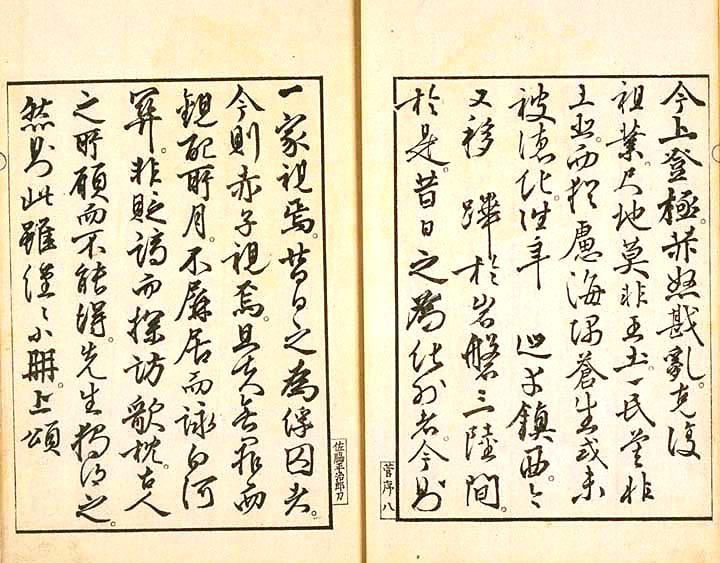 今上登極。赫怒戡亂。克復
祖業。尺地莫非王土。一民莫非
王臣。而猶慮海隅蒼生或未
被德化。往年 巡守鎮西。今
又移 蹕於岩磐三陸間。
於是昔日之為化外者。今則
菅序八
一家視焉。昔日之為俘囚者。
今則赤子視焉。且夫無罪而
觀配所月。不屏居而詠白河
關。非貶謫而探訪歌枕。古人
之所願而不能得。先生獨得之。
然則此雖僅々小冊。上頌
佐脇平治郎刀